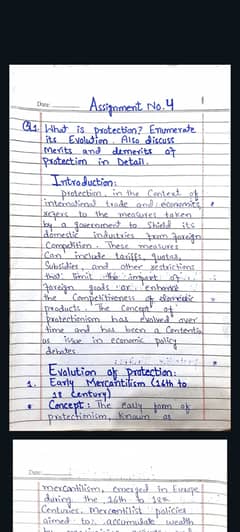 Date:
Assignment No. 4
Q1. What is protection? Enumerate
its Evolution. Also discuss
merits and demerits of
protection in Detail.
Introduction:
protection, in the Context of
international trade and economics,
refers to the measures taken
by a government to Shield its
domestic industries from foreign
Competition. These measures
Can include tariffs, quotas,
Subsidies, and other restrictions
that limit the import of
foreign goods or enhance
the Competitiveness of domestic
products. The Concept of
protectionism has evolved over
time and has been a Contentio
us issue in economic policy
debates.
Evolution of protection:
1. Early Mercantilism (16th to
18 Century)
Concept: The early form of
protectionism, known as
Date:
mercantilism, emerged in Europe
during the 16th to 18th
Centuries. Mercantilist policies
aimed to accumulate wealth